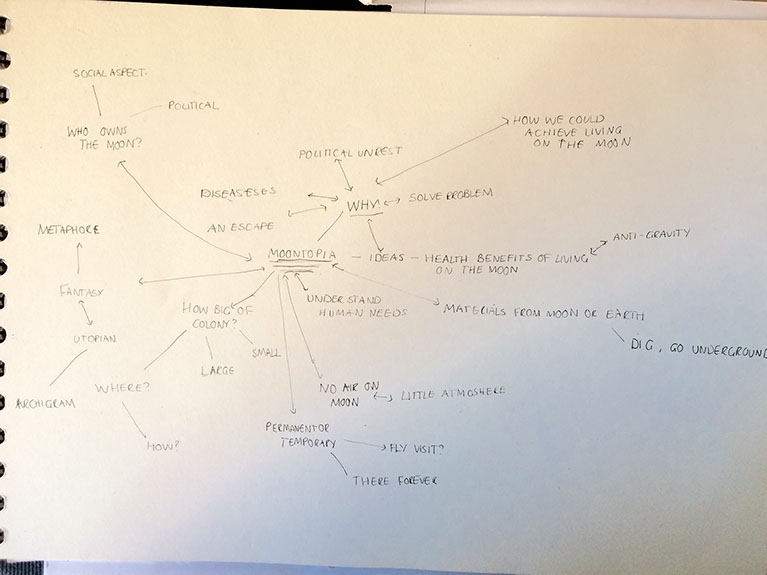 SOCIAL ASPECT.
POLITICAL
WHO OWNS
THE MOON?
HOW WE COULD
ACHIEVE LIVING
ON THE MOON
POLITICAL UNREST
DISEASESES
WHY!
SOLVE PROBLEM
AN ESCAPE
METAPHORE
MOONTOPIA
IDEAS
HEALTH BENEFITS OF LIVING
ON THE MOON
ANTI-GRAVITY
FANTASY
HOW BIG OF
COLONY?
UNDERSTAND
HUMAN NEEDS
MATERIALS FROM MOON OR EARTH
UTOPIAN
SMALL
LARGE
DIG, GO UNDERGROUND
ARCHIGRAM
WHERE?
NO AIR ON
MOON
LITTLE ATMOSHERE
HOW?
PERMANENT OR
TEMPORARY
FLY VISIT?
THERE FOREVER